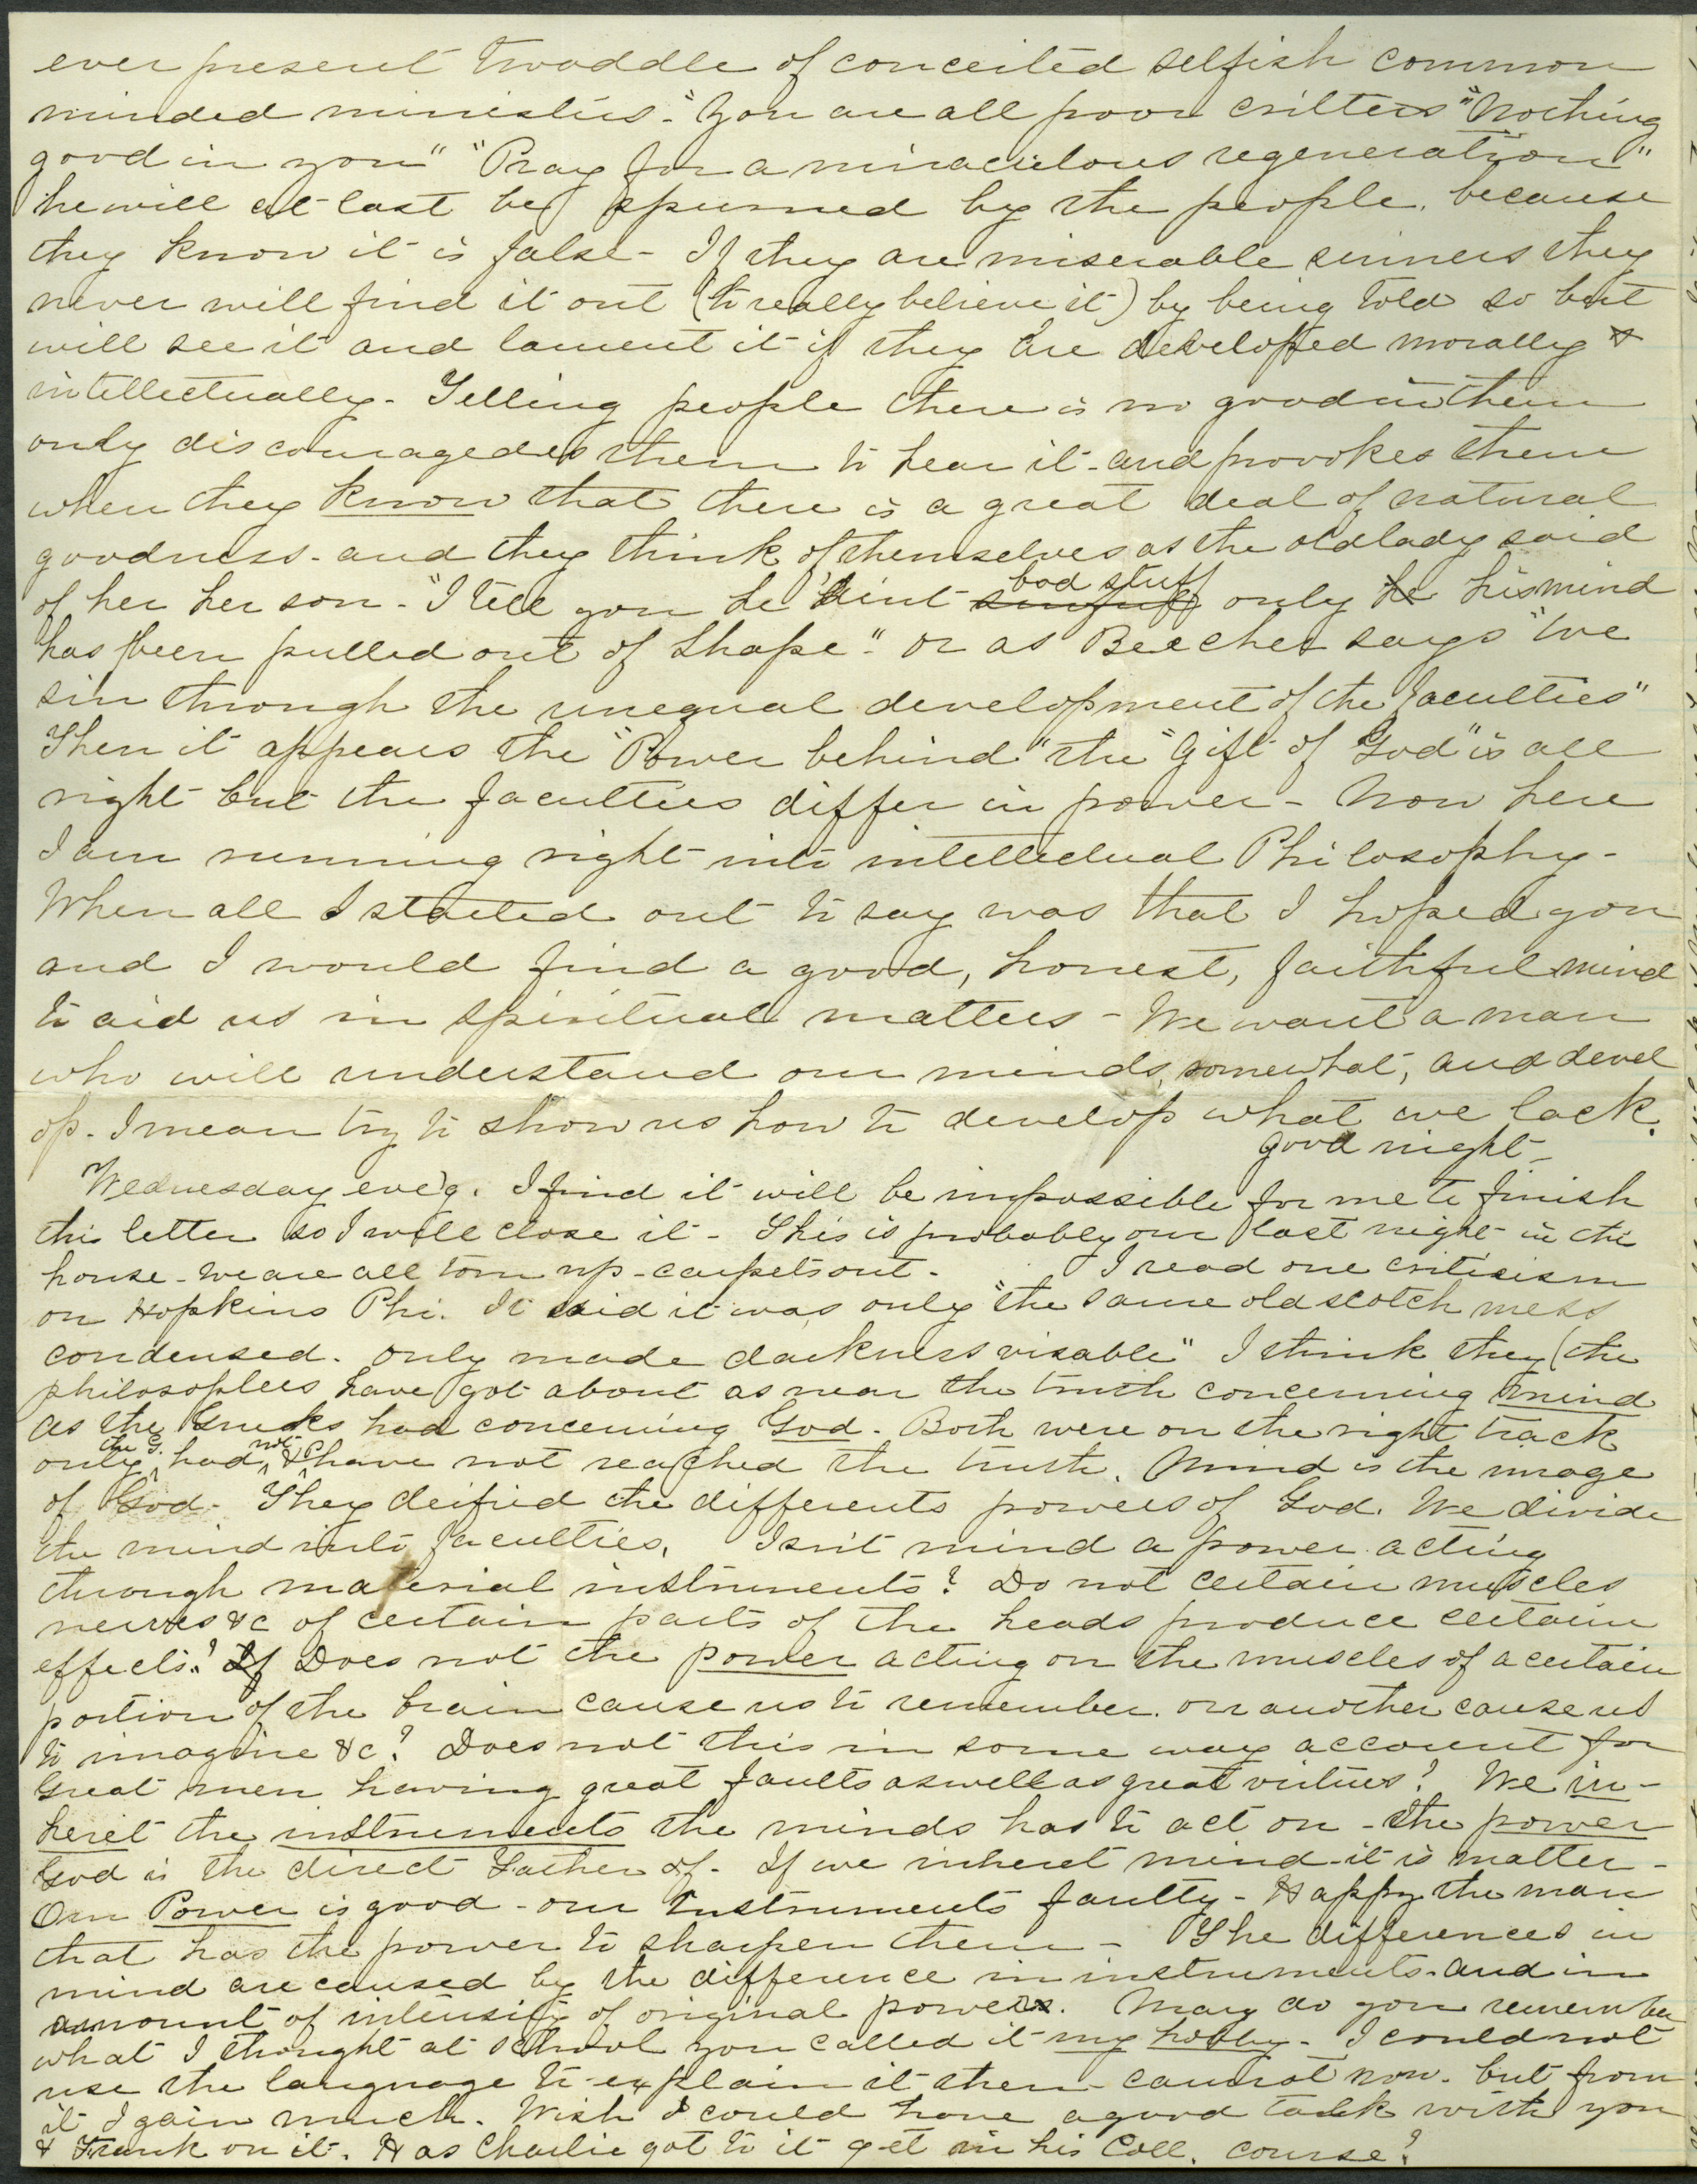 ever present twaddle of conceited selfish common
minded ministers - "You are all poor critters" "Nothing
good in you" "Pray for a miraculous regeneration"
he will at last be spurned by the people, because
they know it is false - If they are miserable sinners they
never will find it out (to really believe it) by being told so but
will see it and lament it if they are developed morally &
intellectually - Telling people there is no good in them
only discouragedes them to hear it - and provokes them
when they know that there is a great deal of natural
goodness - and they think of themselves as the old lady said
of her her son - "I tell you he 'aint bad stuff only he his mind
has been pulled out of shape". or as Beecher says "we
sin through the unequal development of the faculties"
Then it appears the "Power behind" the "Gift of God" is all
right but the faculties differ in power - Now here
I am running right into intellectual Philosophy -
When all I started out to say was that I hoped you
and I would find a good, honest, faithful mind
to aid us in spiritual matters - We want a man
who will understand our minds, somewhat, and devel
op - I mean try to show us how to develop what we lack.
good night -
Wednesday eve'g. I find it will be impossible for me to finish
this letter so I will close it - This is probably our last night in the
house - we are all torn up - carpets out - I read one criticism
on Hopkins Phi. It said it was only "the same old scotch mess
condensed - only made darkness visable" I think they (the
philosophers have got about as near the truth concerning mind
as the Greeks had concerning God. Both were on the right track
only the G. had not & P have not reached the truth. Mind is the image
of God - They deified the differents powers of God. We divide
the mind into faculties. Isn't mind a power acting
through material instruments? Do not certain muscles
nerves &c of certain parts of the heads produce certain
effects? If Does not the power acting on the muscles of a certain
portion of the brain cause us to remember. or another cause us
to imagine &c? Does not this in some way account for
Great men having great faults as well as great virtues? We in-
heret the instruments the minds has to act on - the power
God is the direct Father of - If we inheret mind - it is matter -
Our Power is good - our Instruments faulty - Happy the man
that has the power to sharpen them - The differences in
mind are caused by the difference in instruments - and in
amount of intensity of original power. Mary do you remember
what I thought at school you called it my hobby - I could not
use the language to explain it then - cannot now - but from
it I gain much. Wish I could have a good talk with you
& Frank on it. Has Charlie got to it yet in his Coll. course?